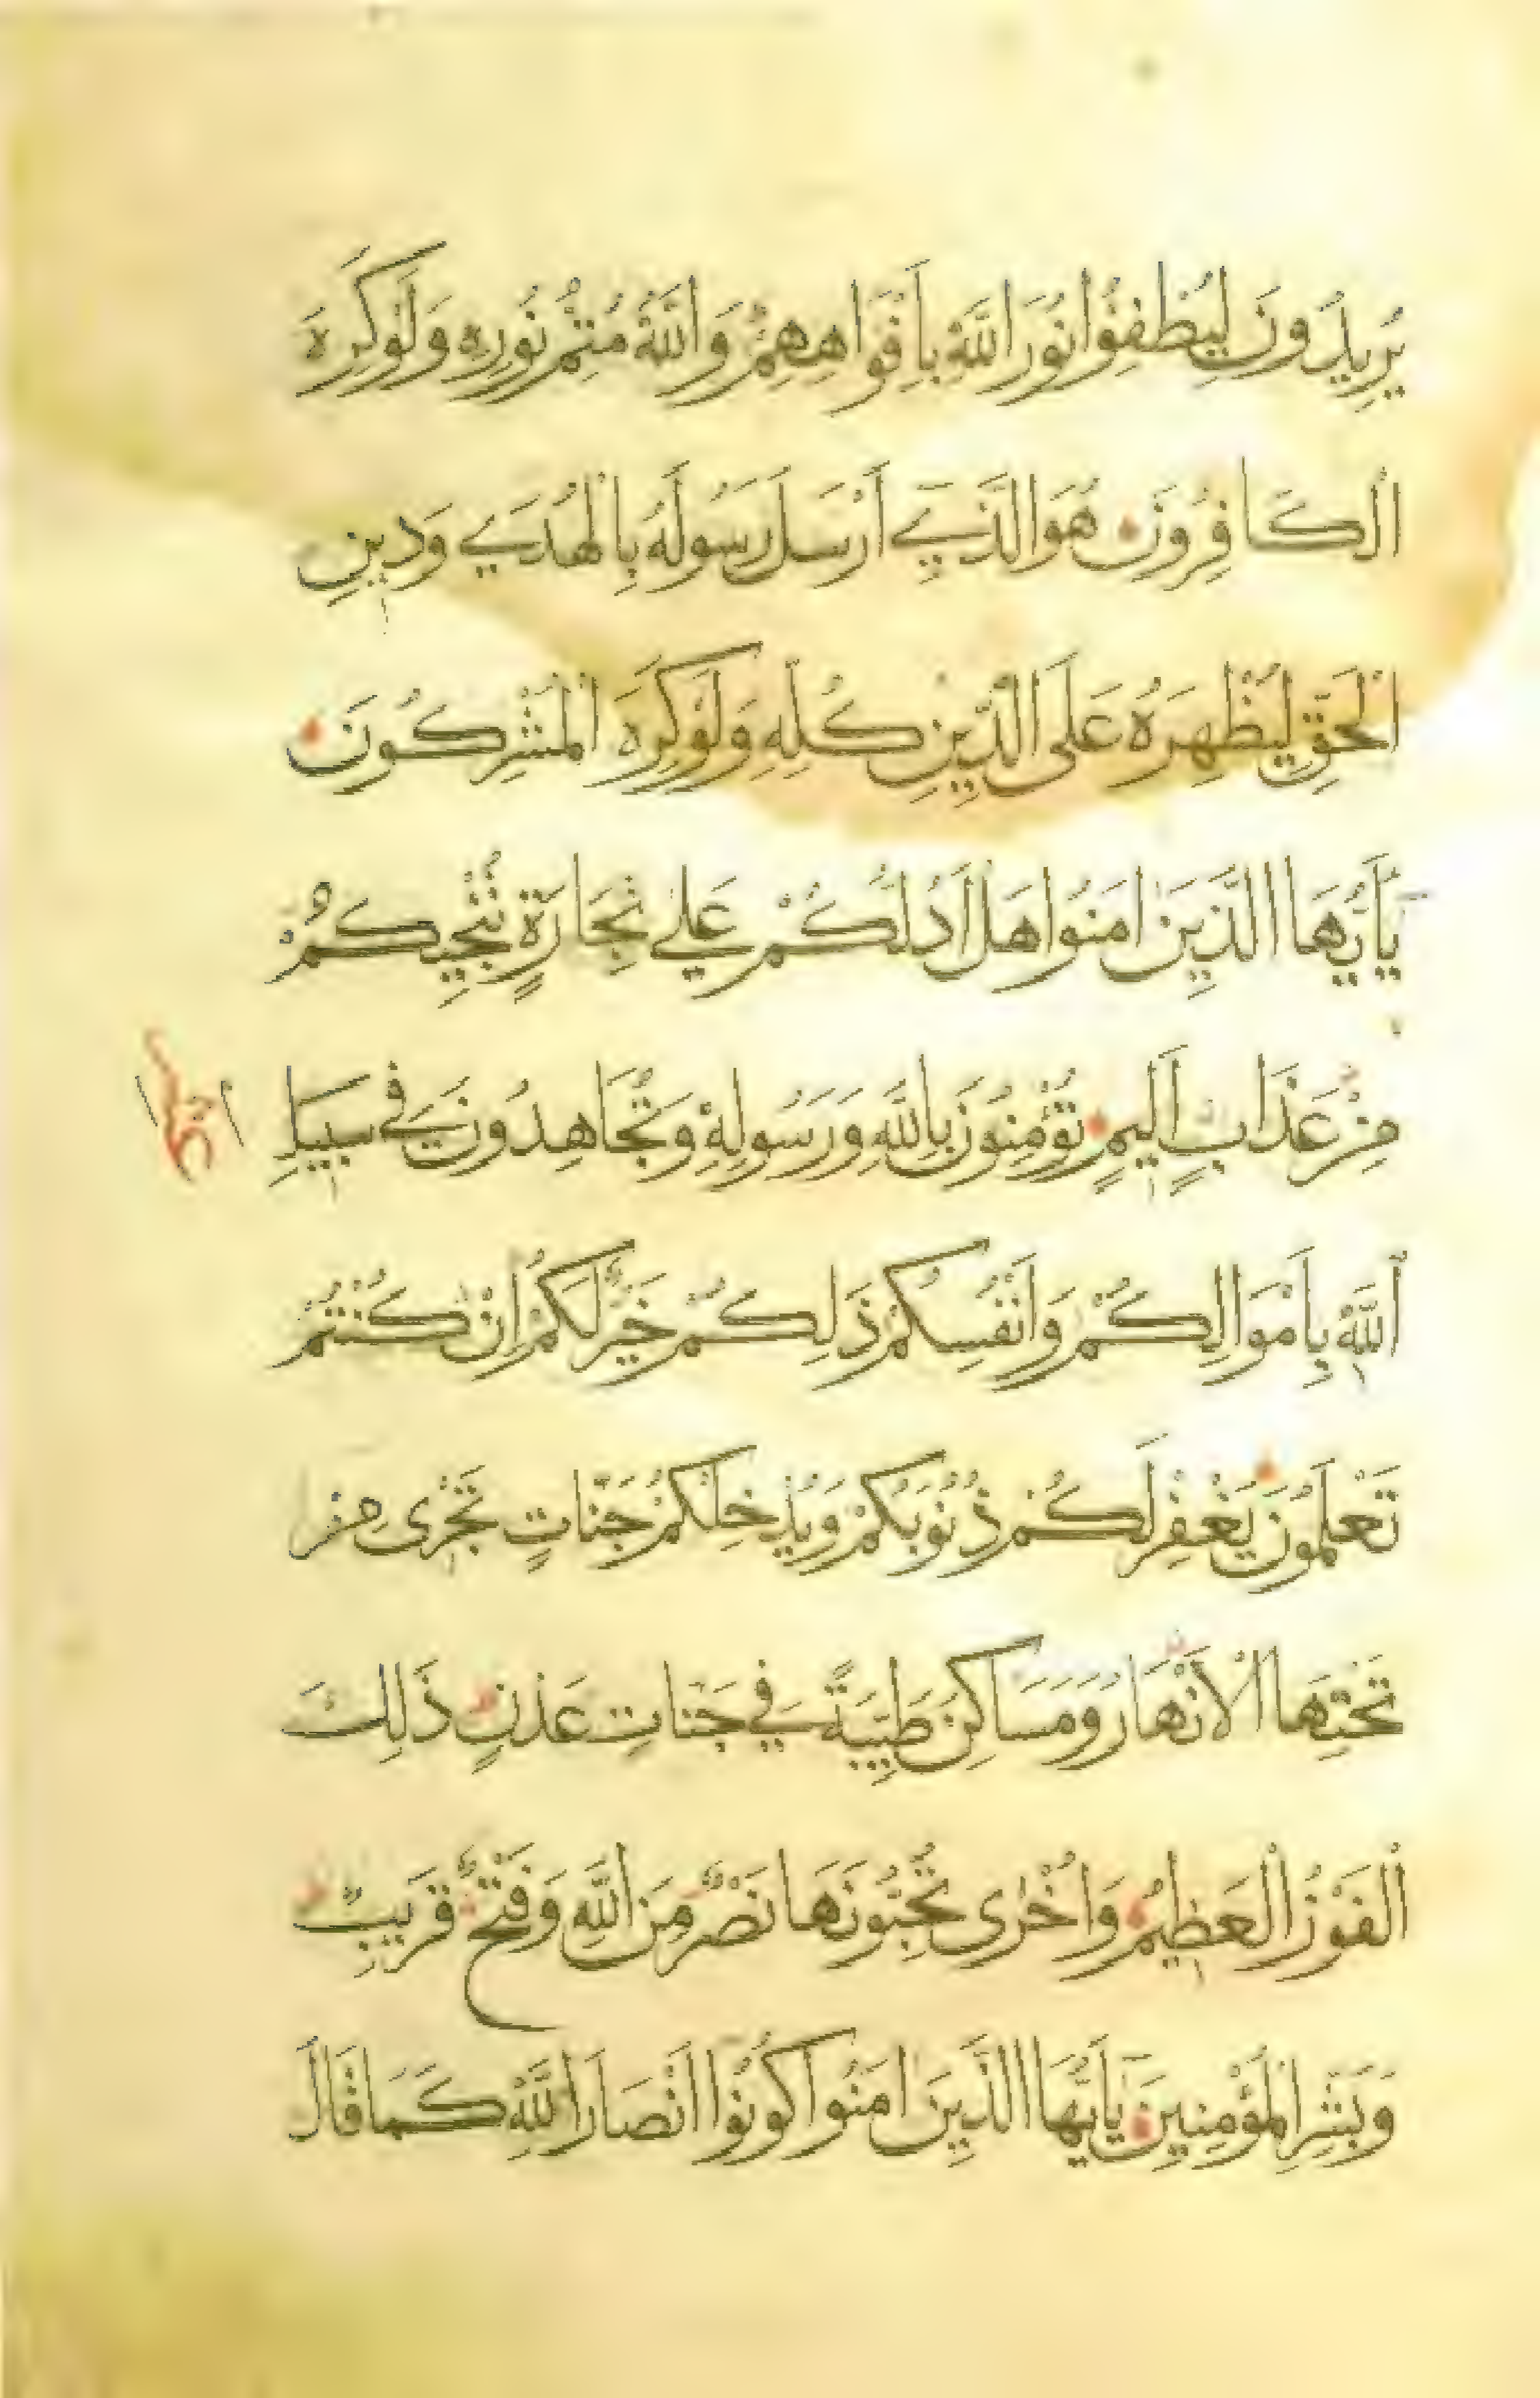 يُرِيدُونَ لِيُطْفِئُوا نُورَ اللَّهِ بِأَفْوَاهِهِمْ وَاللَّهُ مُتِمُّ نُورِهِ وَلَوْ كَرِهَ
الْكَافِرُونَ هُوَ الَّذِي أَرْسَلَ رَسُولَهُ بِالْهُدَى وَدِينِ
الْحَقِّ لِيُظْهِرَهُ عَلَى الدِّينِ كُلِّهِ وَلَوْ كَرِهَ الْمُشْرِكُونَ
يَا أَيُّهَا الَّذِينَ امَنُوا هَلْ أَدُلُّكُمْ عَلَى تِجَارَةٍ تُنْجِيكُمْ
مِنْ عَذَابٍ أَلِيمٍ تُؤْمِنُونَ بِاللَّهِ وَرَسُولِهِ وَتُجَاهِدُونَ فِي سَبِيلِ
اللَّهِ بِأَمْوَالِكُمْ وَأَنْفُسِكُمْ ذَلِكُمْ خَيْرٌ لَكُمْ إِنْ كُنْتُمْ
تَعْلَمُونَ يَغْفِرْ لَكُمْ ذُنُوبَكُمْ وَيُدْخِلْكُمْ جَنَّاتٍ تَجْرِى مِنْ
تَحْتِهَا الْأَنْهَارُ وَمَسَاكِنَ طَيِّبَةً فِي جَنَّاتِ عَدْنٍ ذَلِكَ
الْفَوْزُ الْعَظِيمُ وَأُخْرَى تُحِبُّونَهَا نَصْرٌ مِنَ اللَّهِ وَفَتْحٌ قَرِيبٌ
وَبَشِّرِ الْمُؤْمِنِينَ يَا أَيُّهَا الَّذِينَ امَنُوا كُونُوا أَنْصَارَ اللَّهِ كَمَا قَالَ